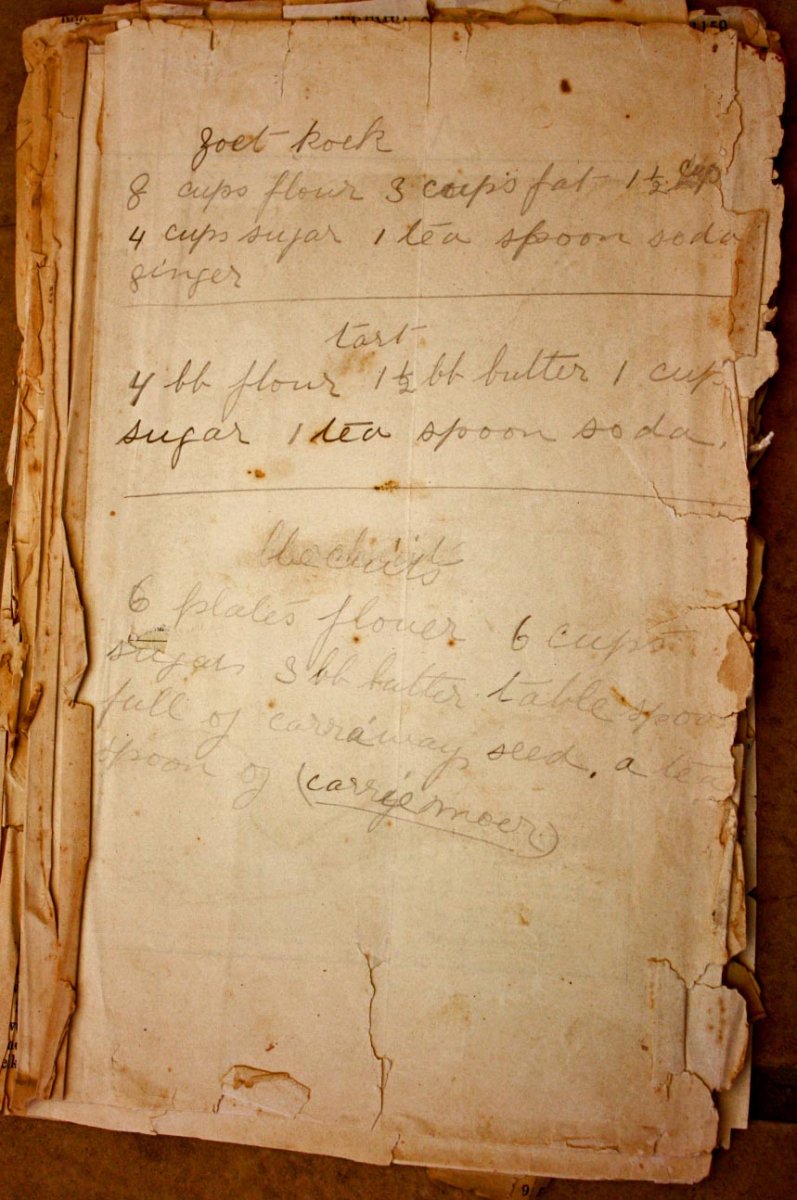 1159
zoet koek
8 cups flour 3 cups fat 1½ cup
4 cups sugar 1 tea spoon soda
ginger
tart
4 lb flour 1½ lb butter 1 cup
sugar 1 tea spoon soda.
6 plates flouer 6 cups
sugar 3 lb butter table spoon
full of carraway seed, a tea
spoon of (carrie moer)